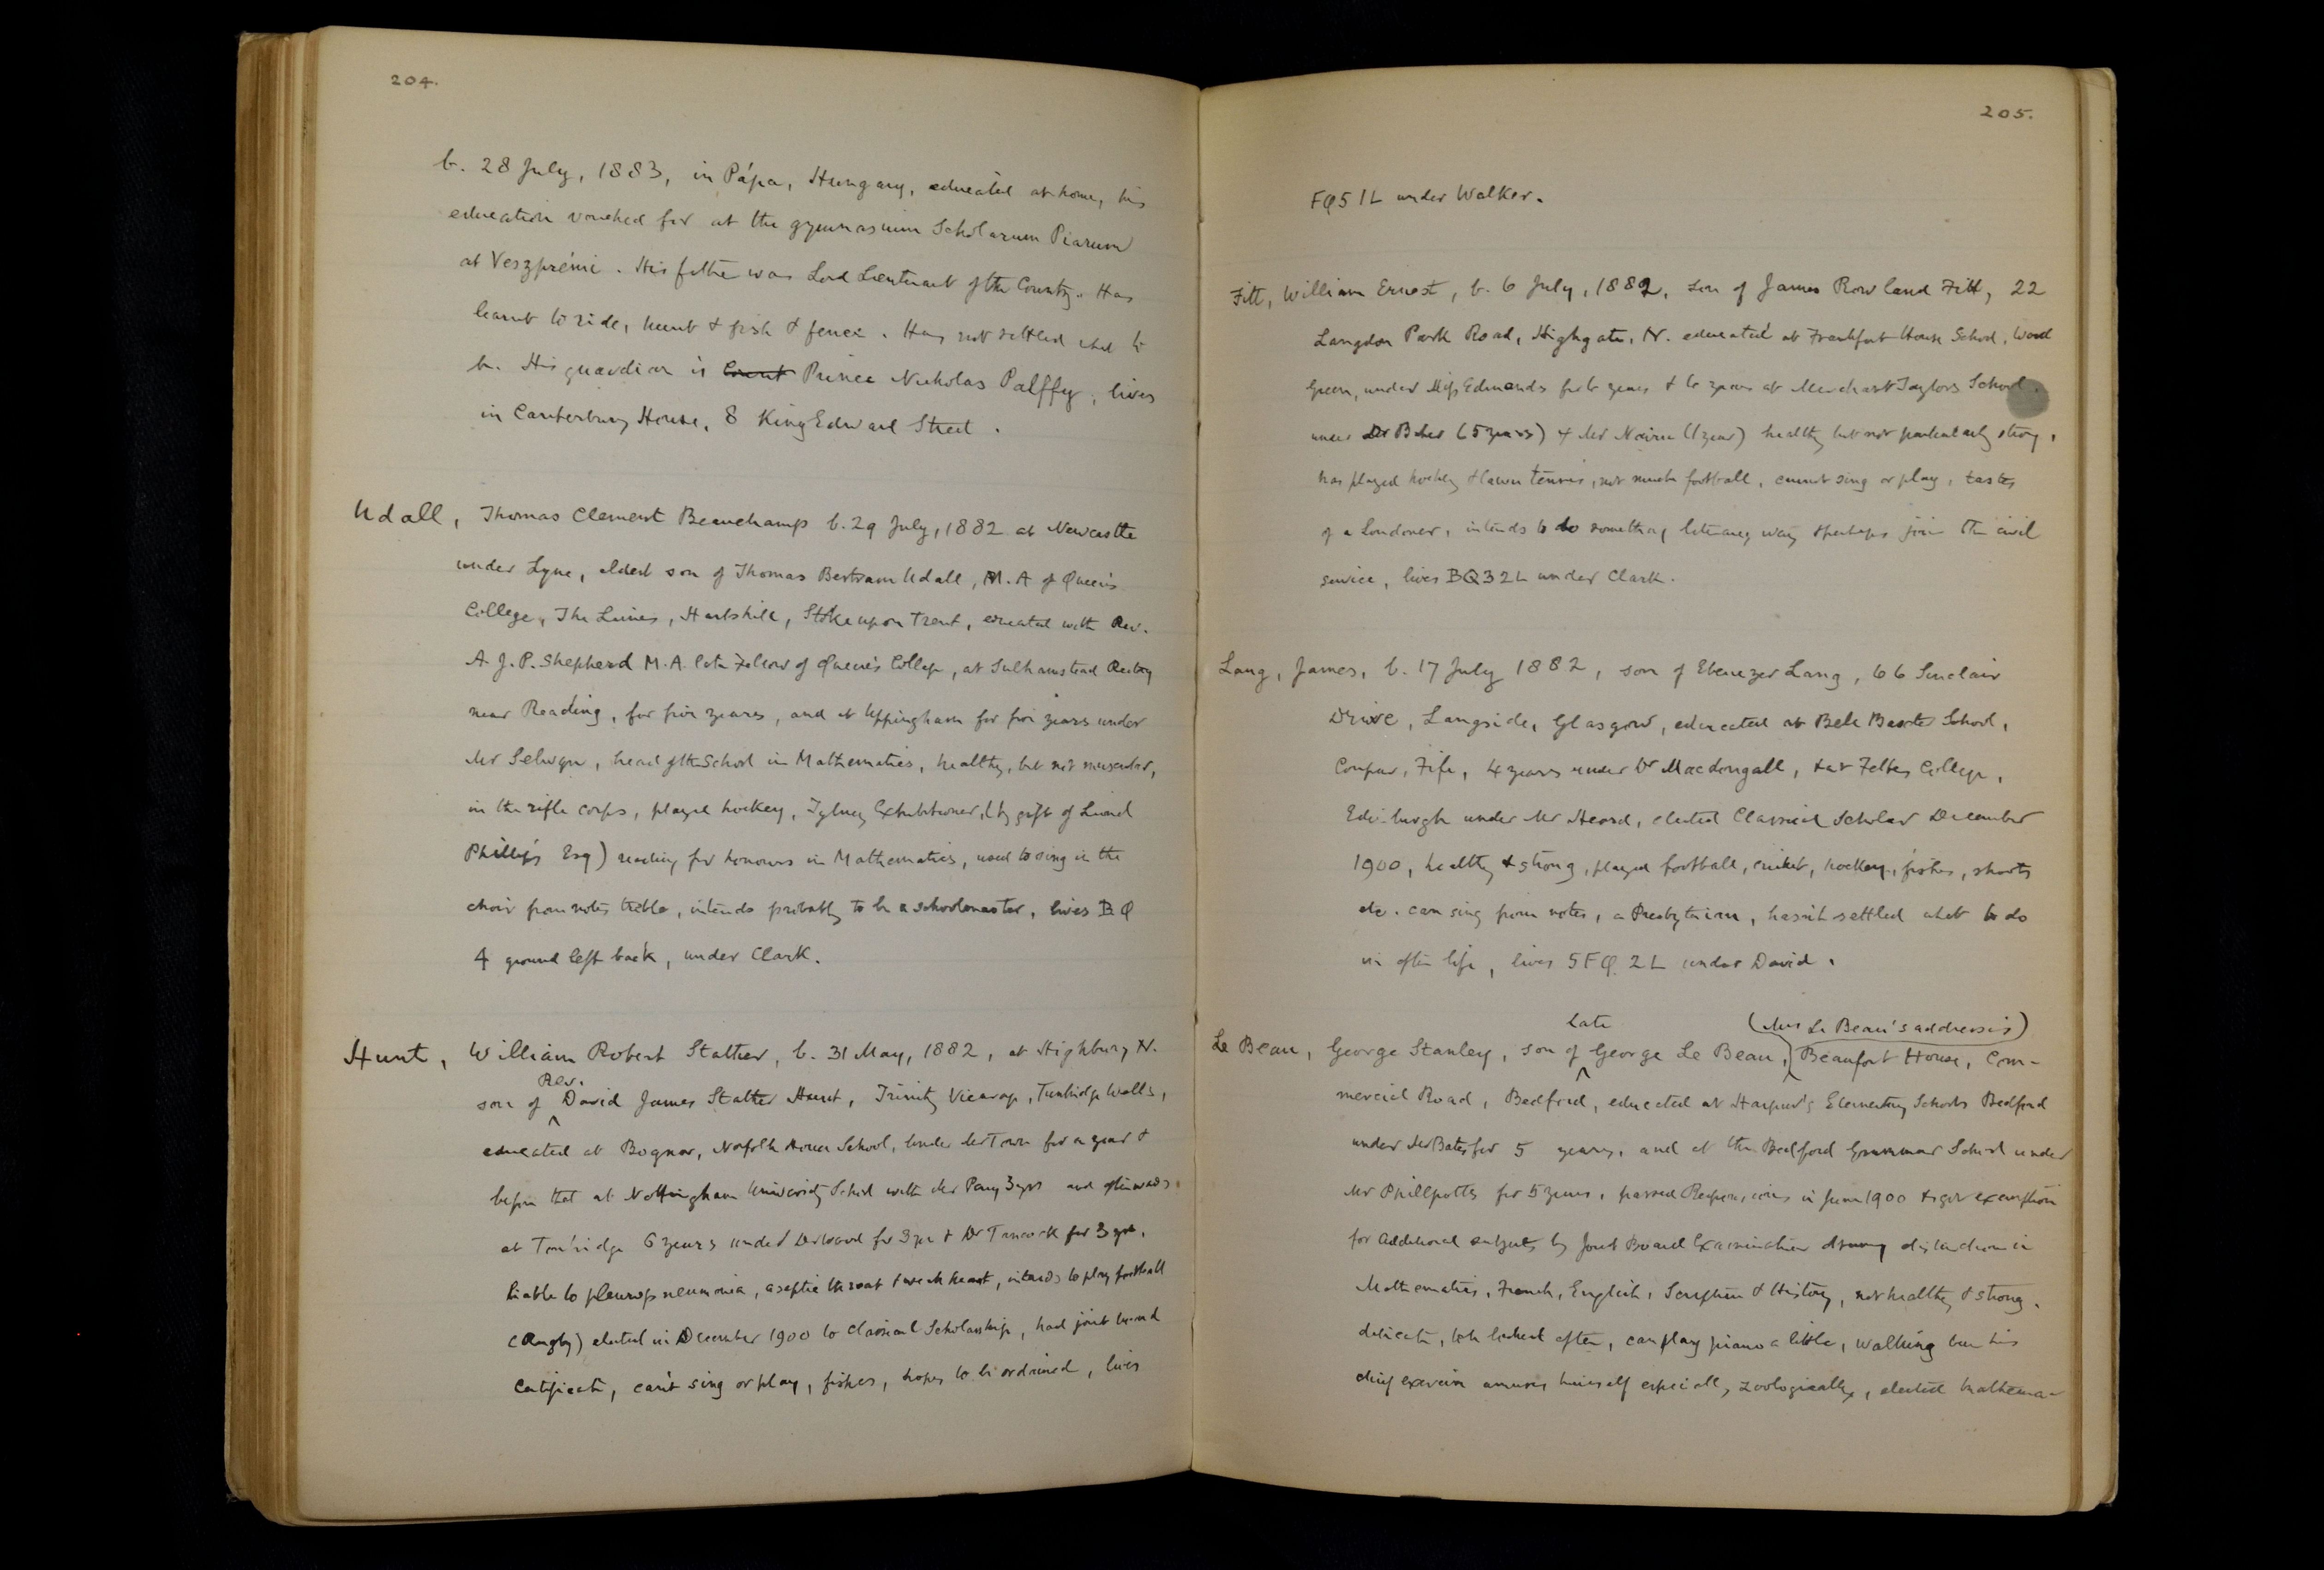 204.
b. 28 July, 1883, in Pápa, Hungary, educated at home, his
education vouched for at the gymnasium Scholarum Piarum
at Veszprémi. His father was Lord Lieutenant of the County. Has
learnt to ride, hunt & fish & fence. Has not settled what to
be. His guardian is Count Prince Nicholas Palffy, lives
in Canterbury House, 8 King Edward Street.
Udall, Thomas Clement Beauchamp b. 29 July, 1882 at Newcastle
under Lyne, eldest son of Thomas Bertram Udall, M.A of Queen's
College, The Limes, Hartshill, Stoke upon Trent, educated with Rev.
A. J. P. Shepherd M.A. late Fellow of Queen's College, at Sulhamstead Rectory
near Reading, for five years, and at Uppingham for five years under
Mr Selwyn, head of the School in Mathematics, healthy, but not muscular,
in the rifle corps, played hockey, Tylney Exhibitioner, (by gift of Lionel
Phillips Esq) reading for honours in Mathematics, used to sing in the
choir from notes treble, intends probably to be a schoolmaster, lives BQ
4 ground left back, under Clark.
Hunt, William Robert Stather, b. 31 May, 1882, at Highbury N.
son of Rev. David James Stather Hunt, Trinity Vicarage, Tunbridge Wells,
educated at Bognor, Norfolk House School, under Mr Town for a year &
before that at Nottingham University School with Mr Parry 3 yrs and afterwards
at Tonbridge 6 years under Dr Wood for 3 yrs & Dr Tancock for 3 yrs.
liable to pleuropneumonia, aseptic throat & weak heart, intends to play football
(Rugby) elected in December 1900 to Classical Scholarship, had joint board
Certificate, can't sing or play, fishes, hopes to be ordained, lives
205.
FQ5 1L under Walker.
Fitt, William Ernest, b. 6 July, 1882, son of James Rowland Fitt, 22
Langdon Park Road, Highgate, N. educated at Frankfort House School, Wood
Green, under Miss Edmands for 6 years & 6 years at Merchant Taylors School.
under Dr Baker (5 years) & Mr Nairn (1 year) healthy but not particularly strong,
has played hockey & lawn tennis, not much football, cannot sing or play, tastes
of a Londoner, intends to do something literary way & perhaps join the civil
service, lives BQ3 2L under Clark.
Lang, James, b. 17 July 1882, son of Ebenezer Lang, 66 Sinclair
Drive, Langside, Glasgow, educated at Bell Baxter School,
Coupar, Fife, 4 years under Dr Macdongall, & at Fettes College,
Edinburgh under Mr Heard, elected Classical Scholar December
1900, healthy & strong, played football, cricket, hockey, fishes, shoots
etc. can sing from notes, a Presbyterian, hasn't settled what to do
in after life, lives 5FQ 2L under David.
Le Beau, George Stanley, son of late George Le Beau, (Mrs Le Beau's address is) Beaufort House, Com-
mercial Road, Bedford, educated at Harpur's Elementary Schools Bedford
under Mr Bates for 5 years, and at the Bedford Grammar School under
Mr Phillpotts for 5 years, passed Responsions in June 1900 & got exemption
for Additional subjects by Joint Board Examination distinction in
Mathematics, French, English, Scripture & History, not healthy & strong,
delicate, to be looked after, can play piano a little, walking been his
chief exercise amuses himself especially zoologically, elected Mathema-